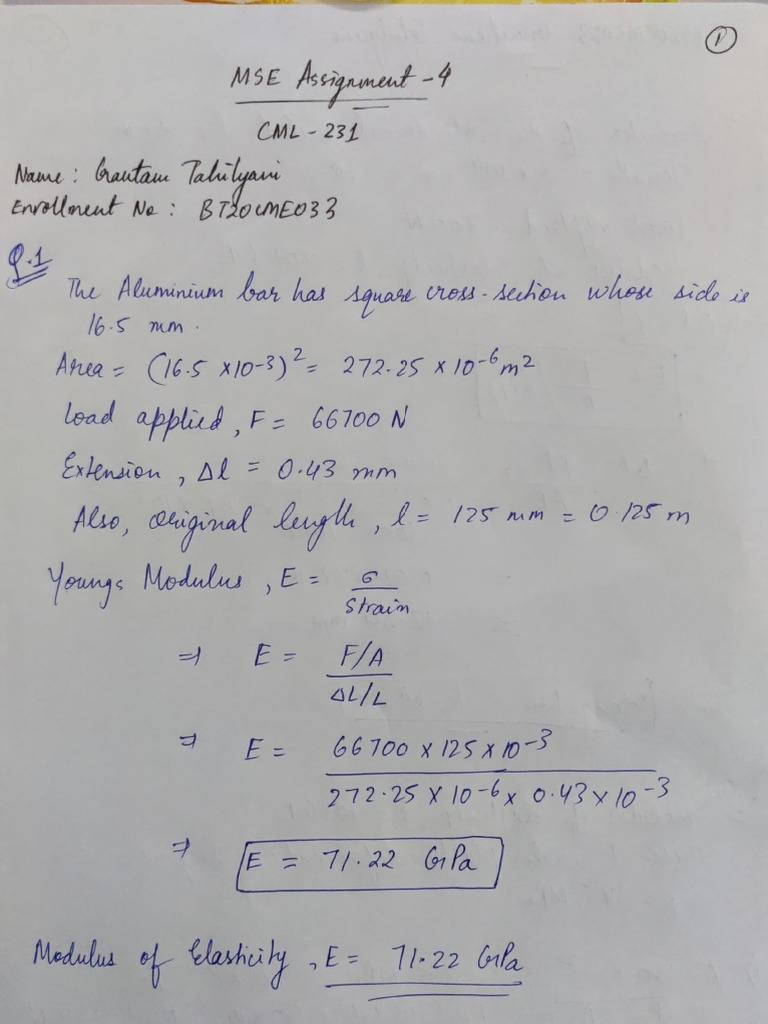 1
MSE Assignment - 4
CML - 231
Name : Gautam Tahilyani
Enrollment No : BT20CME033
Q.1
The Aluminium bar has square cross-section whose side is
16.5 mm.
Area = (16.5 × 10-3)² = 272.25 × 10-6 m²
Load applied, F = 66700 N
Extension, Δl = 0.43 mm
Also, original length, l = 125 mm = 0.125 m
Youngs Modulus, E = σ / Strain
⇒ E = F/A / ΔL/L
⇒ E = 66700 × 125 × 10-3 / 272.25 × 10-6 × 0.43 × 10-3
⇒ E = 71.22 GPa
Modulus of Elasticity, E = 71.22 GPa